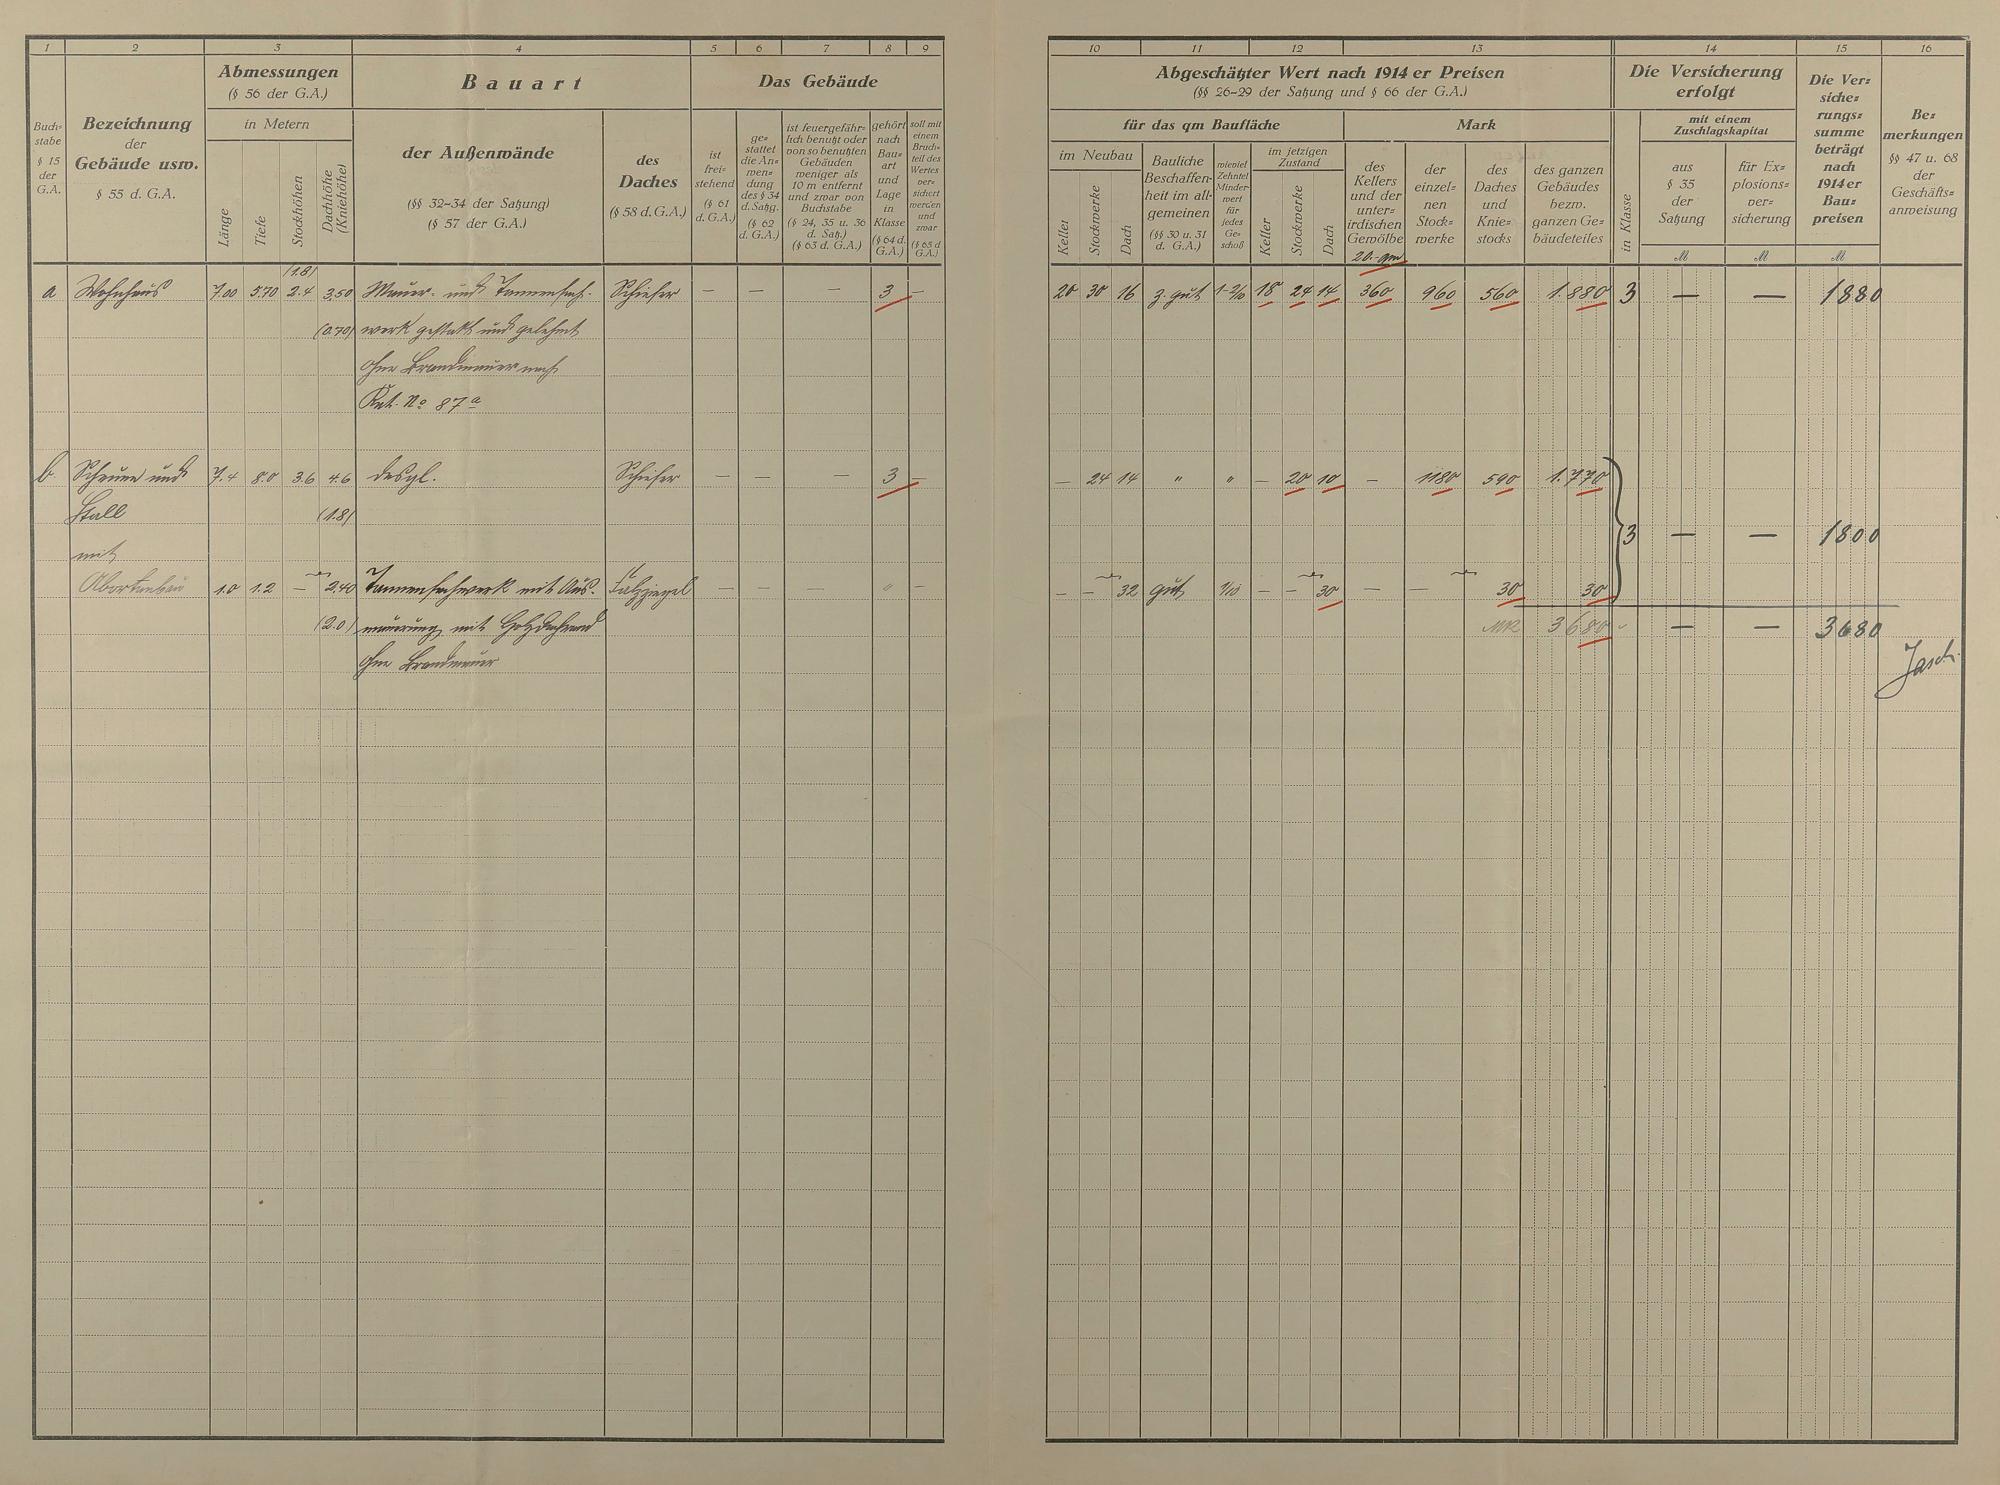 1 2 3 4 5 6 7 8 9
Buch=
stabe
§ 15
der
G.A.
Bezeichnung
der
Gebäude usw.
§ 55 d. G.A.
Abmessungen
(§ 56 der G.A.)
in Metern
Länge
Tiefe
Stockhöhen
Dachhöhe
(Kniehöhe)
Bauart
der Außenwände
(§§ 32-34 der Satzung)
(§ 57 der G.A.)
des
Daches
(§ 58 d. G.A.)
Das Gebäude
ist
frei=
stehend
(§ 61
d. G.A.)
ge=
stattet
die An=
wen=
dung
des § 34
d. Satzg.
(§ 62
d. G.A.)
ist feuergefähr=
lich benutzt oder
von so benutzten
Gebäuden
weniger als
10 m entfernt
und zwar von
Buchstabe
(§ 24, 35 u. 36
d. Satz.)
(§ 63 d. G.A.)
gehört
nach
Bau=
art
und
Lage
in
Klasse
(§ 64 d.
G.A.)
soll mit
einem
Bruch=
teil des
Wertes
ver=
sichert
werden
und
zwar
(§ 65 d
G.A.)
(1.8)
a Wohnhaus 7.00 5.70 2.4 3.50 Mauer- und Tannenfach- Schiefer — — — 3 —
(0.70) werk gestakt und gelehmt
ohne Brandmauer nach
Kat. No 87a
b Scheune und 7.4 8.0 3.6 4.6 desgl. Schiefer — — — 3 —
Stall (1.8)
mit
Abortanbau 1.0 1.2 — 2.40 Tannenfachwerk mit Aus- Falzziegel — — — " —
(2.0) mauerung mit
ohne Brandmauer
10 11 12 13 14 15 16
Abgeschätzter Wert nach 1914 er Preisen
(§§ 26-29 der Satzung und § 66 der G.A.)
für das qm Baufläche
im Neubau
Keller
Stockwerke
Dach
Bauliche
Beschaffen=
heit im all=
gemeinen
(§§ 30 u. 31
d. G.A.)
wieviel
Zehntel
Minder=
wert
für
jedes
Ge=
schoß
im jetzigen
Zustand
Keller
Stockwerke
Dach
Mark
des
Kellers
und der
unter=
irdischen
Gewölbe
der
einzel=
nen
Stock=
werke
des
Daches
und
Knie=
stocks
des ganzen
Gebäudes
bezw.
ganzen Ge=
bäudeteiles
Die Versicherung
erfolgt
in Klasse
mit einem
Zuschlagskapital
aus
§ 35
der
Satzung
für Ex=
plosions=
ver=
sicherung
Die Ver=
siche=
rungs=
summe
beträgt
nach
1914 er
Bau=
preisen
Be=
merkungen
§§ 47 u. 68
der
Geschäfts=
anweisung
ℳ ℳ ℳ
20.-qm
20 30 16 z. gut 1-2/10 18 24 14 360 960 560 1.880 3 — — 1880
— 24 14 " " — 20 10 — 1180 590 1.770
3 — — 1800
— — 32 gut 1/10 — — 30 — — 30 30
MR 3680 — — 3680
Jasch.